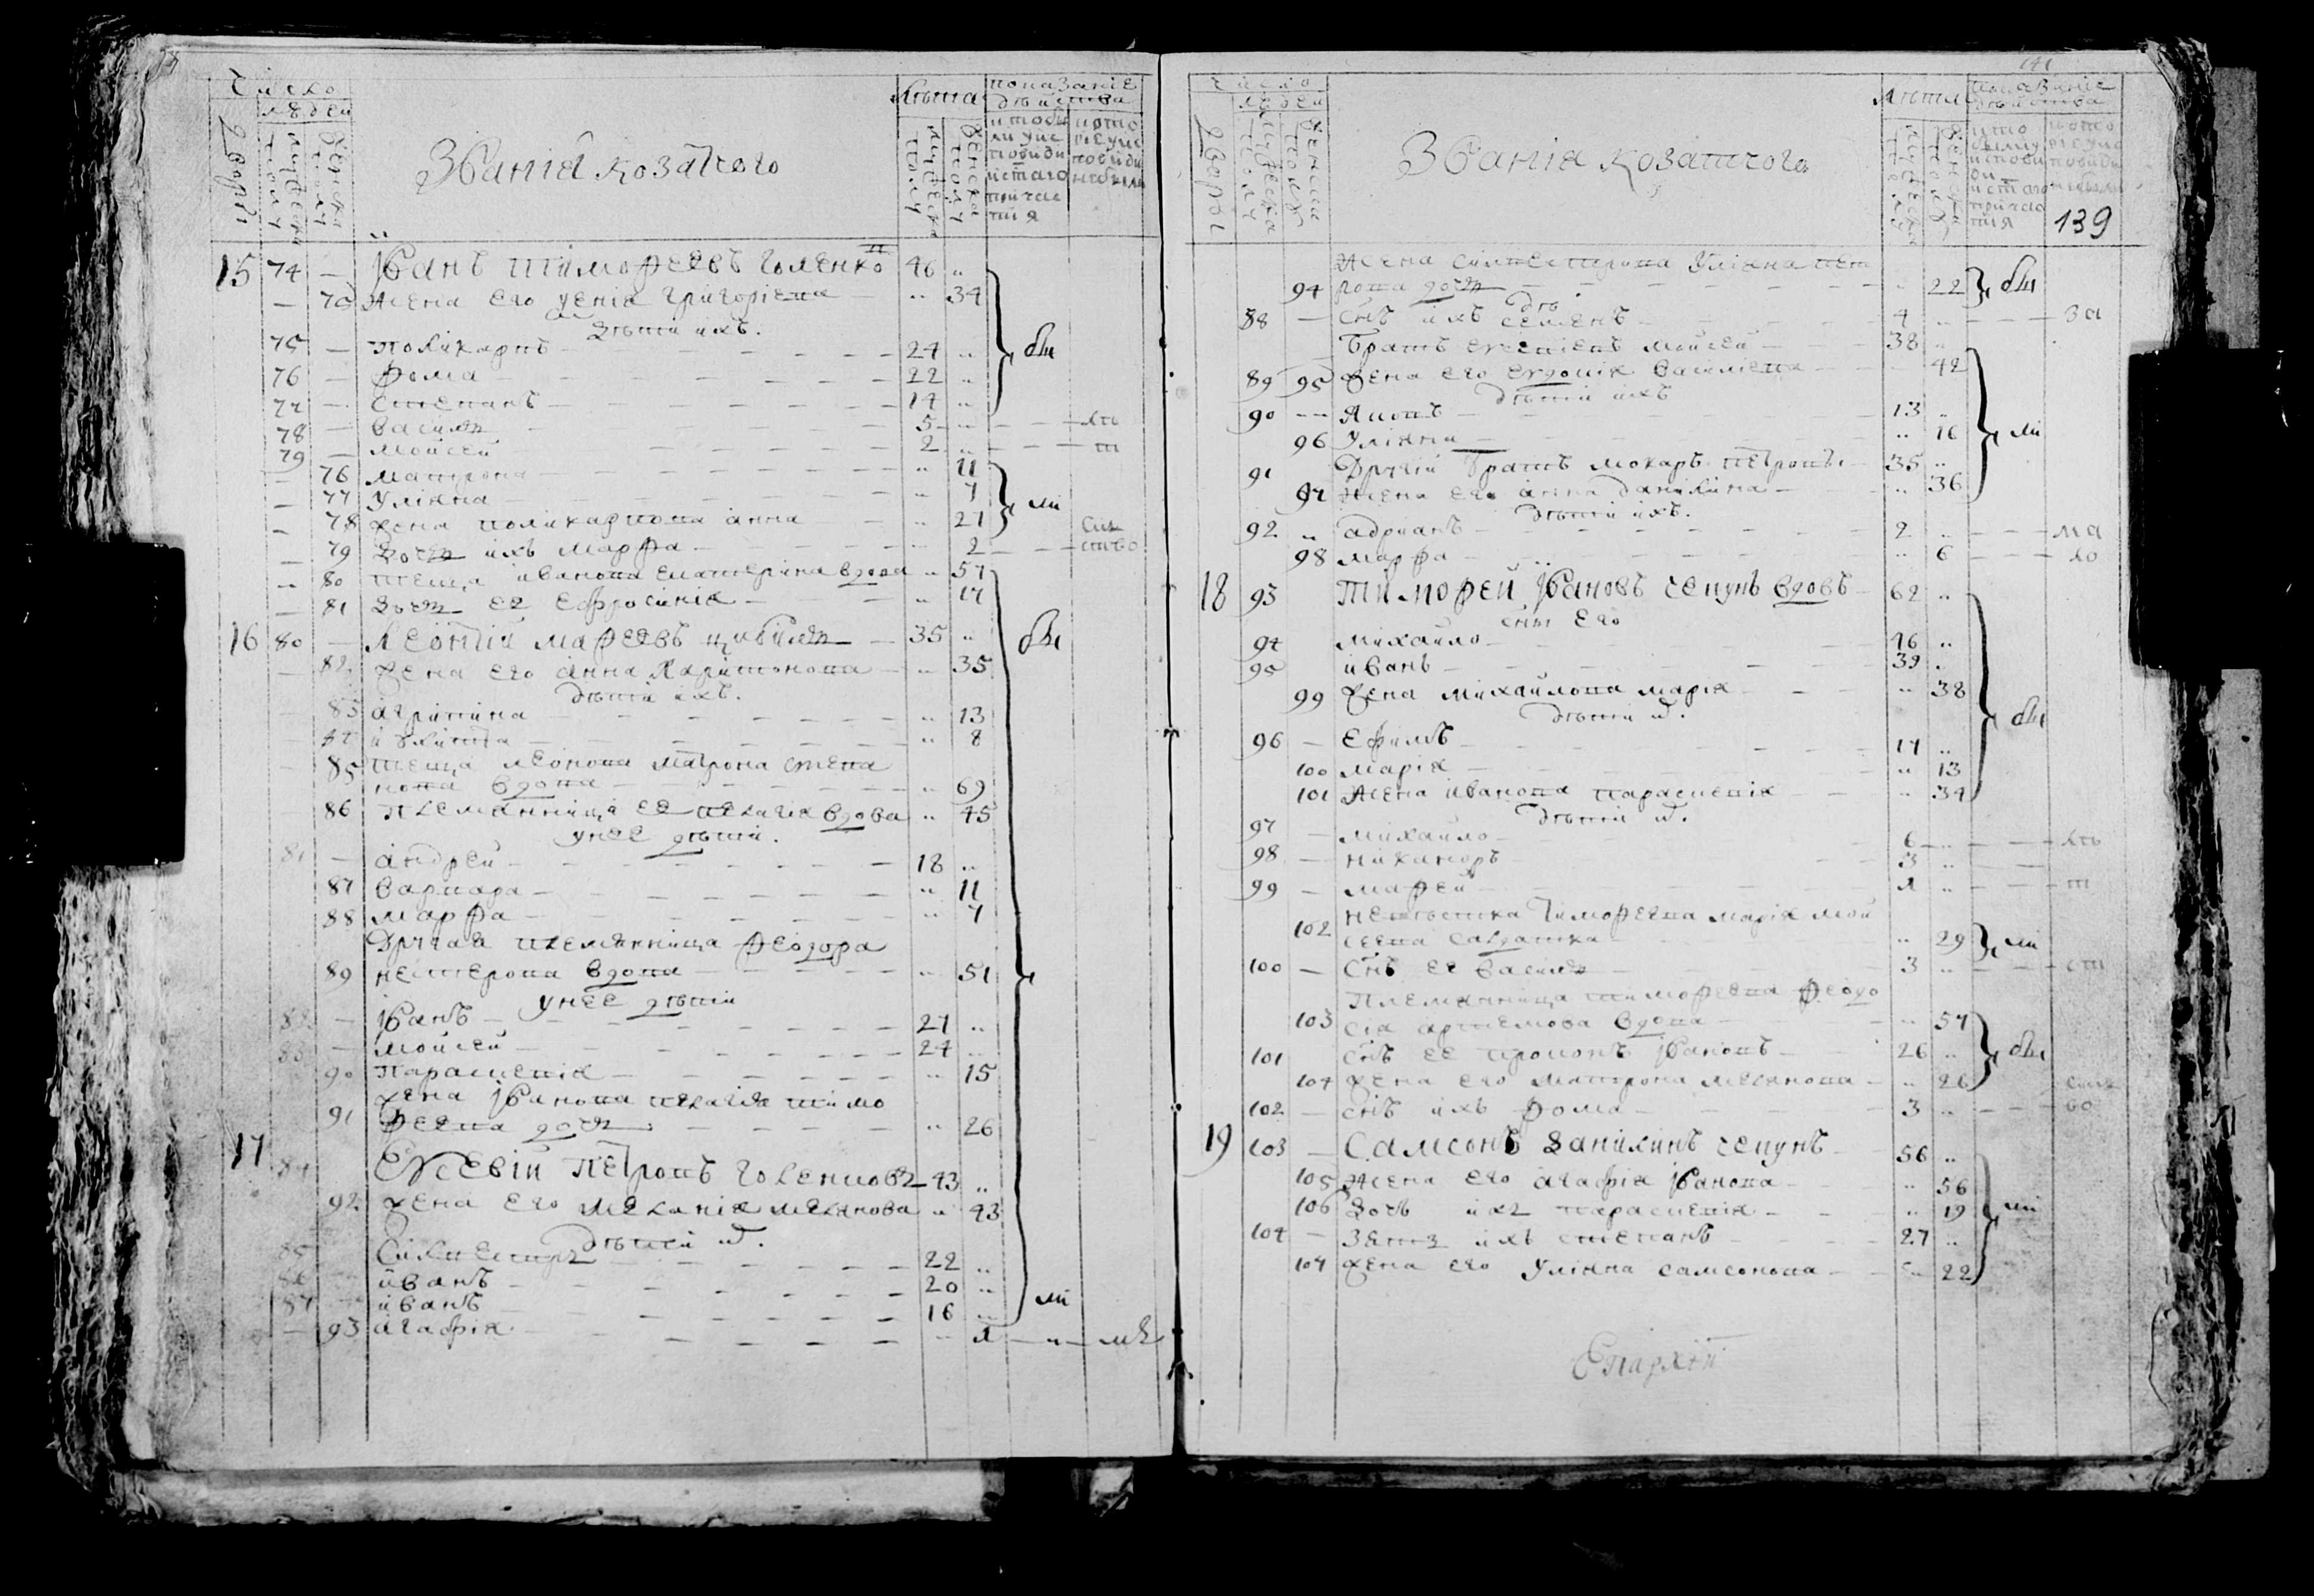 Число
людей
Двори
мужеска полу
женска полу
Званія козачого
Лѣта
мужеска полу
женска полу
показаніе
дѣйства
исповиди
и стаго
причас
тія
15 74 — Іванъ Тимофеевъ Голенко 46 ..
— 75 Жена его Ѵенія Григоріева — .. 34
Дѣти ихъ.
75 — Поликарпъ — 24 .. бы
76 — Фома — 22 ..
77 — Степанъ — 14 ..
78 — Василь 5 .. — лѣ
79 — Мойсей 2 .. — т
— 76 Матрона — .. 11
— 77 Уліяна — .. 7
— 78 Жена Поликарпова Анна — .. 21 ли
— 79 Дочь ихъ Марфа — .. 2 — ство
.. 80 Теща Иванова Екатерина вдова .. 57
— 81 Дочь ее Ефросинія — .. 17
16 80 — Леонтій Мафеевъ Цибуль — 35 .. бы
— 82 Жена его Анна Харитонова — .. 35
Дѣти ихъ.
83 Агрипина — .. 13
84 Іулитта — .. 8
85 Теща Леонова Матрона Степа
нова вдова — .. 69
86 Племянница ее Пелагія вдова .. 45
У нее дѣти.
81 — Андрей — 18 ..
87 Варвара — .. 11
88 Марфа — .. 7
Другая племянница Феодора
89 Нестерова вдова — .. 51
У нее дѣти
82 — Іванъ — 27 ..
83 — Мойсей — 24 ..
90 Параскевія — .. 15
Жена Іванова Пелагія Тимо
91 феева дочь — .. 26
17 84 Евсевій Петровъ Голенковъ 43 ..
92 Жена его Меланія Меланова .. 43
Дѣти и.
85 Силвестръ — 22 ..
86 Иванъ — 20 ..
87 Иванъ — 16 .. ли
— 93 Агафія — .. 1
Число
людей
Двори
Званія козатчого
Лѣта
показаніе
дѣйства
139
Жена Силвестрова Уліяна Пет
94 рова дочь — .. 22 бы
88 — Снъ ихъ Семенъ — 4 .. — за
Братъ Евсевіевъ Мойсей — 38 ..
89 95 Жена его Евдокія Василіева — 42
Дѣти ихъ
90 — Яковъ — 13 ..
96 Уліяна — .. 16 ли
91 Другій братъ Мокаръ Петровъ — 35 ..
97 Жена его Анна Данилина — .. 36
Дѣти ихъ.
92 .. Адріанъ — 2 .. — ма
98 Марфа — .. 6 — ло
18 93 Тимофей Івановъ Чепунъ вдовъ — 62 ..
Сны его
94 Михайло — 46 ..
95 Иванъ — 39 ..
99 Жена Михайлова Марія — .. 38
Дѣти и. бы
96 — Ефимъ — 17 ..
100 Марія — .. 13
101 Жена Иванова Параскевія — .. 34
Дѣти и.
97 — Михайло — 6 .. — лѣ
98 — Никаноръ — 3 ..
99 — Мафей — 1 .. — т
Невѣстка Тимофеева Марія Мой
102 сеева салдатка — .. 29 ли
100 — Снъ ее Василь — 3 .. — ст
Племянница Тимофеева Феодо
103 сія Артемова вдова — .. 57
101 Снъ ее Прокопъ Івановъ — 26 .. бы
104 Жена его Матрона Меланова — .. 26
102 — Снъ ихъ Фома — 3 .. — во
19 103 — Самсонъ Данилинъ Чепунъ — 56 ..
105 Жена его Агафія Іванова — .. 56
106 Дочь ихъ Параскевія — .. 19 ли
104 — Зять ихъ Степанъ — 27 ..
107 Жена его Уліяна Самсонова — .. 22
Епархіи